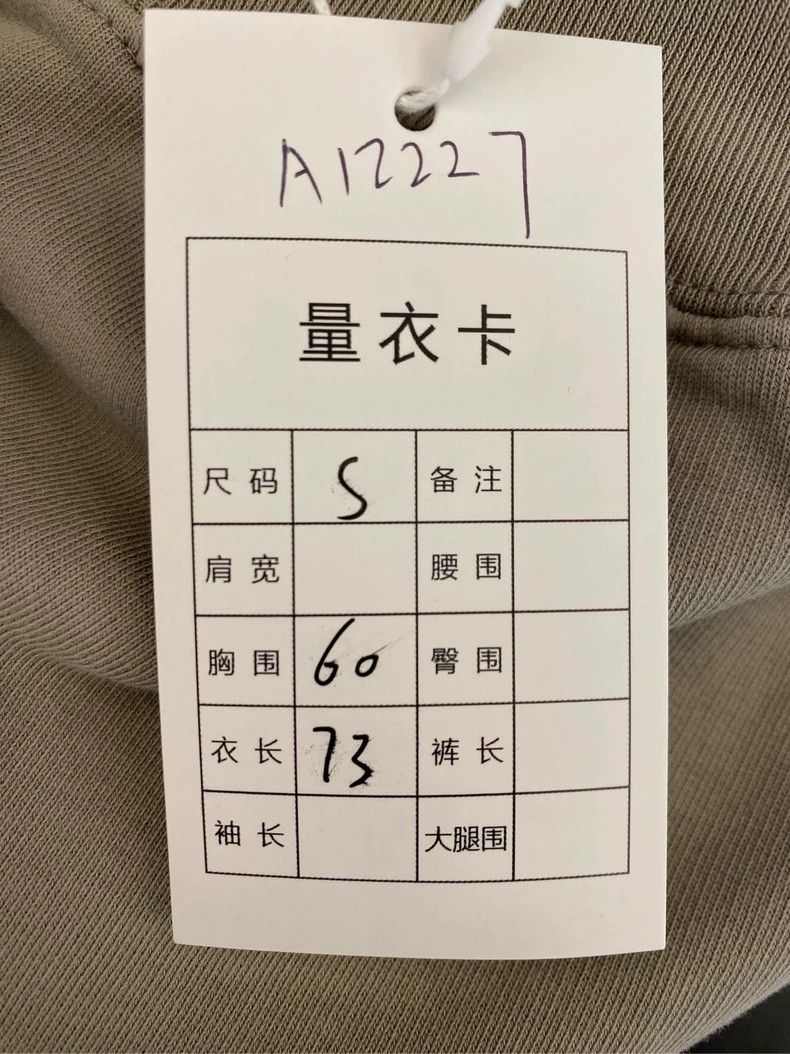 A12227
量衣卡
尺码 S 备注
肩宽 腰围
胸围 60 臀围
衣长 73 裤长
袖长 大腿围